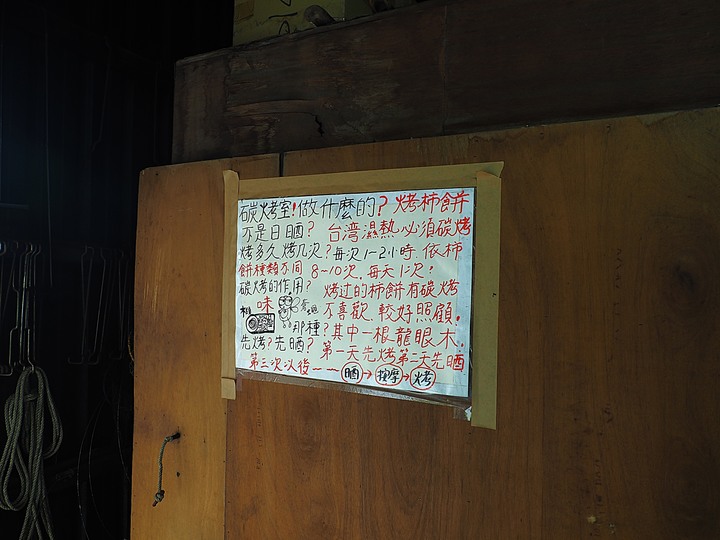 碳烤室!做什麼的?烤柿餅
不是日晒? 台湾濕熱必須碳烤
烤多久烤几次?每次1~2小時.依柿
餅種類不同 8~10次.每天1次?
碳烤的作用? 烤过的柿餅有碳烤
味 蒼蠅 不喜歡.較好照顧.
那種?其中一根龍眼木.
先烤?先晒? 第一天先烤第二天先晒
第三次以後~~晒→按摩→烤